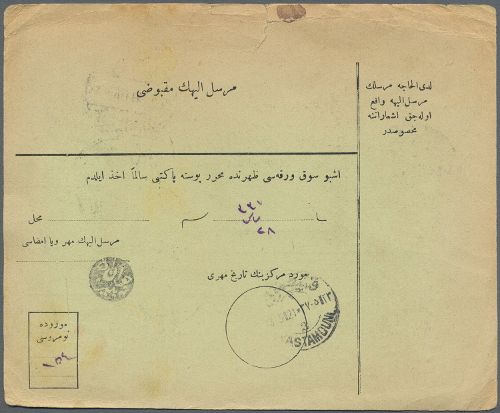 مرسل اليهك مقبوضى
لدى الحاجه مرسلك
مرسل اليهه واقع
اوله جق اشعاراتنه
مخصوصدر
اشبو سوق ورقه سى ظهرنده محرر پوسته پاكتنى سالماً اخذ ايلدم
محل
سم
سا
٢٨
مرسل اليهك مهر ويا امضاسى
مورد مركزينك تاريخ مهرى
ASTAMOUNI
موروده
نومروسى
١٥٤